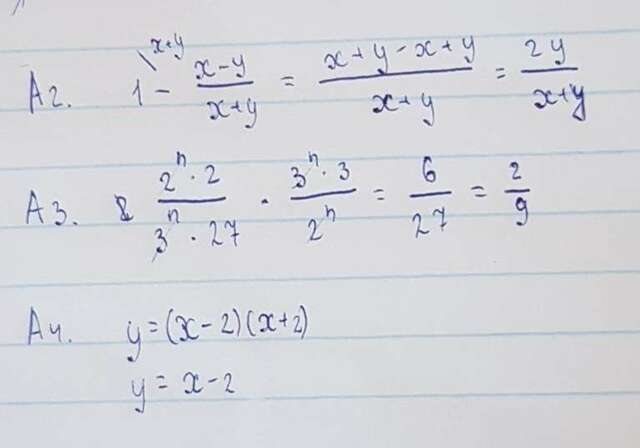 A2. 1 \ x+y - (x-y)/(x+y) = (x+y-x+y)/(x+y) = 2y/(x+y)
A3. (2^n · 2)/(3^n · 27) · (3^n · 3)/(2^n) = 6/27 = 2/9
A4. y = (x-2)(x+2)
y = x-2